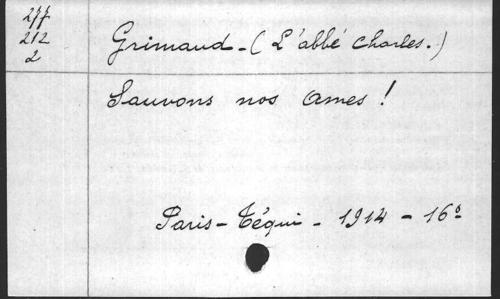 277
212
2
Grimaud - (L'abbé Charles.)
Sauvons nos âmes !
Paris - Téqui - 1914 - 16º